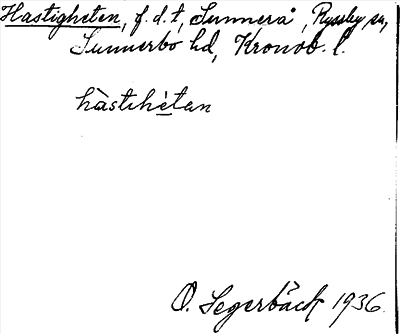 Hastigheten, f.d.t, Sunnerå, Ryssby sn,
Sunnerbo hd, Kronob. l.
hàstihètan
O. Segerbäck 1936.